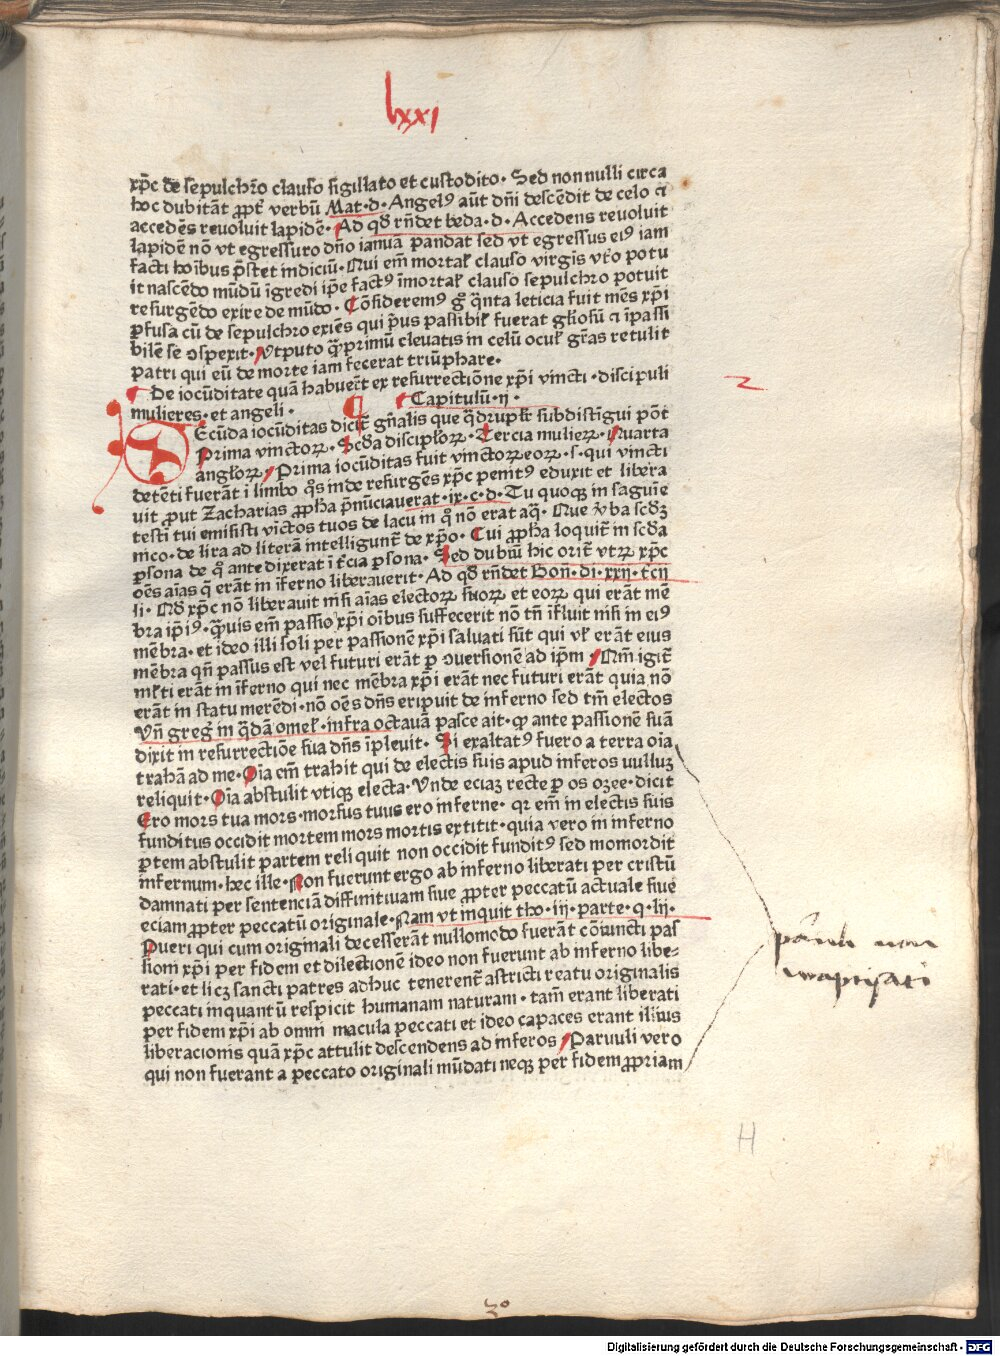 lxxi
xp̄c de sepulchro clauso sigillato et custodito· Sed nonnulli circa
hoc dubitāt ꝓpt̄ verbū Mat·d·Angelꝰ aūt dn̄i descēdit de celo ⁊
accedēs reuoluit lapidē· Ad qd̄ rn̄det beda·d·Accedens reuoluit
lapidē nō vt egressuro dn̄o ianuā pandat sed vt egressus eiꝰ iam
facti hoībus p̄stet indiciū·Qui em̄ mortal clauso virgis vt̄o potu
it nascēdo mūdū īgredi ip̄e factꝰ īmortal clauso sepulchro potuit
resurgēdo exire de mūdo· Cōsideremꝰ g̊ q̄nta leticia fuit mēs xp̄i
ꝑfusa cū de sepulchro exiēs qui pͥus passibil fuerat gl̄iosū ⁊ īpassi
bilē se ꝯspexit·Vtputo qꝫprimū eleuatis in celū ocul gr̄as retulit
patri qui eū de morte iam fecerat triūphare·
De iocūditate quā habuer̄t ex resurrectiōne xp̄i vincti·discipuli
mulieres·et angeli· Capitulū·ij·
SEcūda iocūditas dicit̄ gn̄alis que q̄drupl̄r subdistīgui pōt
Prima vinctoꝝ·Scd̄a discipl̄oꝝ·Tercia mulieꝝ·Quarta
angl̄oꝝ·Prima iocūditas fuit vinctoꝝeoꝝ·s·qui vincti
detēti fuerāt ī limbo q̊s inde resurgēs xp̄c penitꝰ eduxit et libera
uit ꝓut Zacharias ꝓph̄a p̄nūciauerat·ix·c·d·Tu quoqꝫ in saguīe
testī tui emisisti victos tuos de lacu in q̊ nō erat aq̄· Que v̄ba scd̄ꝫ
nico·de lira ad literā intelligunt̄ de xp̄o·Cui ꝓph̄a loquit̄ in scd̄a
ꝑsona de q̊ ante dixerat ī t̄cia ꝑsona·Sed dubiū hic orit̄ vtꝝ xp̄c
oēs aīas q̄ erāt in īferno liberauerit·Ad qd̄ rn̄det Bon̄·di·xxij·t̄cij
li·Qd̄ xp̄c nō liberauit nisi aīas electoꝝ suoꝝ et eoꝝ qui erāt mē
bra ip̄iꝰ·qꝫuis em̄ passio xp̄i oībus suffecerit nō tn̄ īfluit nisi in eiꝰ
mēbra·et ideo illi soli per passionē xp̄i saluati sūt qui vl̄ erāt eius
mēbra qn̄ passus est vel futuri erāt ꝑ ꝯuersionē ad ip̄m·Qm̄ igit̄
ml̄ti erāt in īferno qui nec mēbra xp̄i erāt nec futuri erāt quia nō
erāt in statu merēdi·nō oēs dn̄s eripuit de inferno sed tm̄ electos
Vn̄ greg̊ in q̄dā omel·infra octauā pasce ait·ꝙ ante passionē suā
dixit in resurrectiōe sua dn̄s īpleuit·Si exaltatꝰ fuero a terra oīa
trahā ad me·Oīa em̄ trahit qui de electis suis apud inferos nulluꝫ
reliquit·Oīa abstulit vtiqꝫ electa·Vnde eciaꝫ recte ꝑ os ozee·dicit
Ero mors tua mors·morsus tuus ero inferne·qr em̄ in electis suis
funditus occidit mortem mors mortis extitit·quia vero in inferno
ꝑtem abstulit partem reliquit non occidit funditꝰ sed momordit
infernum·hec ille·Non fuerunt ergo ab inferno liberati per cristū
damnati per sentenciā diffinitiuam siue ꝓpter peccatū actuale siue
eciam ꝓpter peccatū originale·Nam vt inquit tho·iij·parte·q·lij·
Pueri qui cum originali decesserāt nullomodo fuerāt cōiuncti pas
siom xp̄i per fidem et dilectionē ideo non fuerunt ab inferno libe⸗
rati·et licꝫ sancti patres adhuc tenerent̄ astricti reatu originalis
peccati inquantū respicit humanam naturam·tam̄ erant liberati
per fidem xp̄i ab omni macula peccati et ideo capaces erant illius
liberacionis quā xp̄c attulit descendens ad inferos·Paruuli vero
qui non fuerant a peccato originali mūdati neqꝫ per fidem ꝓpriam
2
paruuli non
baptisati
H
Digitalisierung gefördert durch die Deutsche Forschungsgemeinschaft - DFG